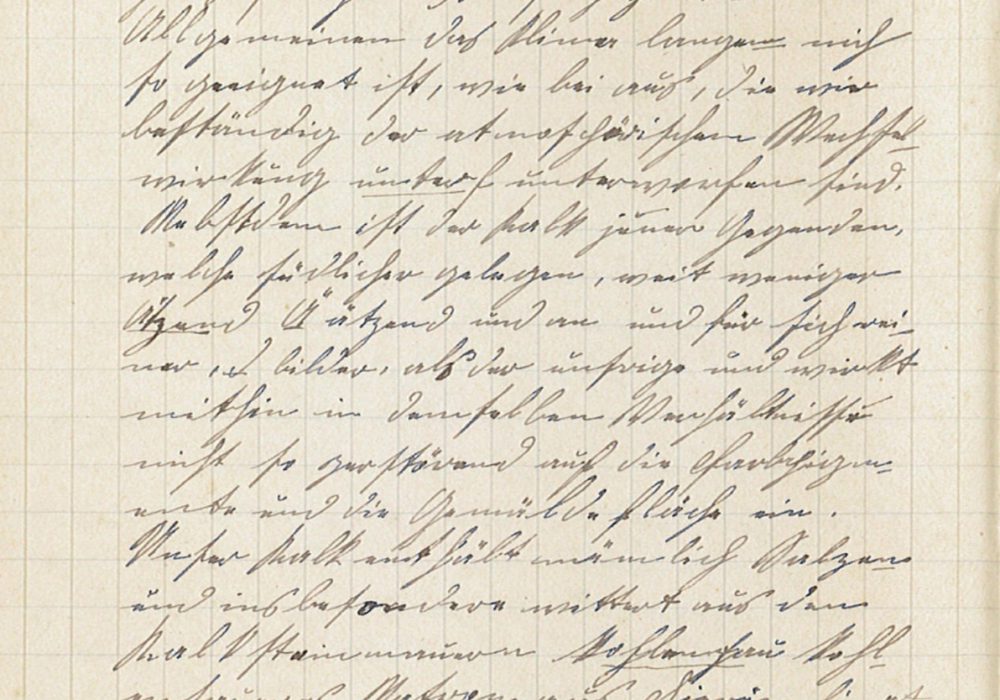 Allgemeinen das Klima langem nich
so geeignet ist, wie bei aus, die wir
beständig der atmosphärischen Wechsel-
wirkung unterf unterworfen sind.
Nebstdem ist der Kalk jener Gegenden,
welche südlicher gelegen, weit weniger
Ätzend ätzend und an und für sich rei-
ner, milder, als der unsrige und wirkt
mithin in demselben Verhältnisse
nicht so zerstörend auf die Farbpigm-
ente und die Gemäldefläche ein.
Unser Kalk enthält nämlich Salzen
und insbesondere wittert aus den
Kalksteinmauern Kohlensau Kohl-
ensaures Natron aus